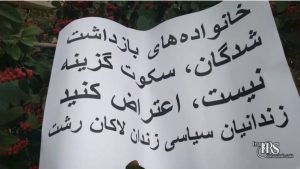 خانواده‌های بازداشت
شدگان، سکوت گزینه
نیست، اعتراض کنید
زندانیان سیاسی زندان لاکان رشت